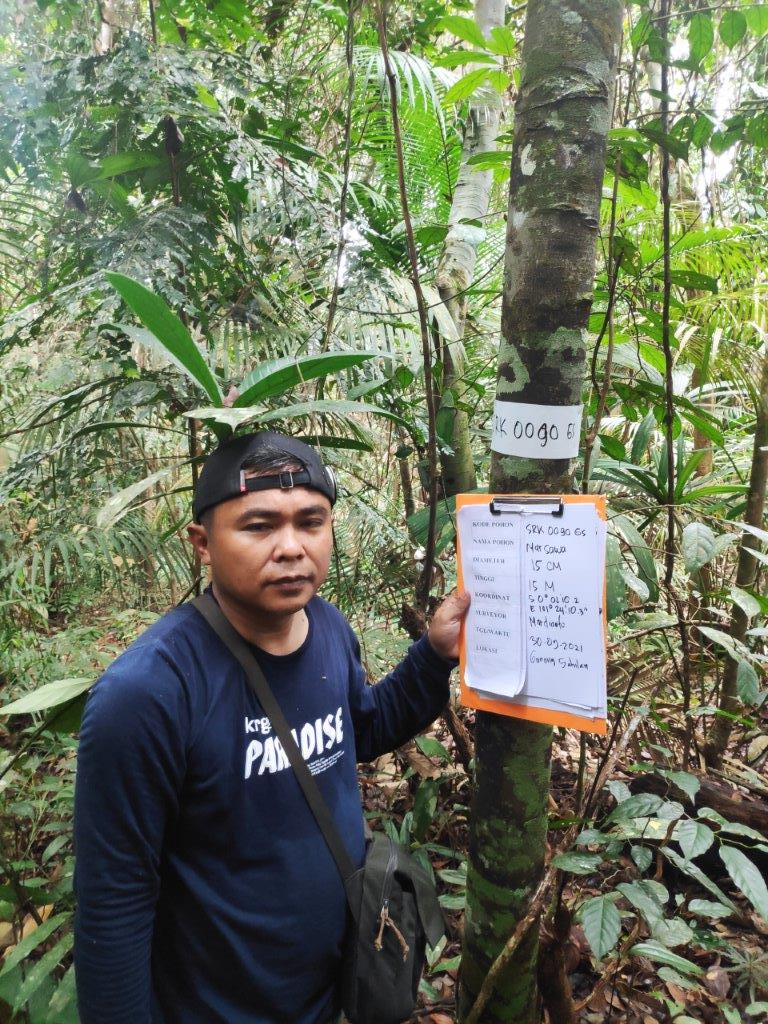 SRK 0090 GS
KODE POHON SRK 0090 GS
NAMA POHON Marsawa
DIAMETER 15 CM
TINGGI 15 M
KOORDINAT S 0° 01' 10.2
E 101° 24' 10.3"
SURVEYOR Mardianto
TGL/WAKTU 30-09-2021
LOKASI Gunung Sahilan
krg
PARADISE